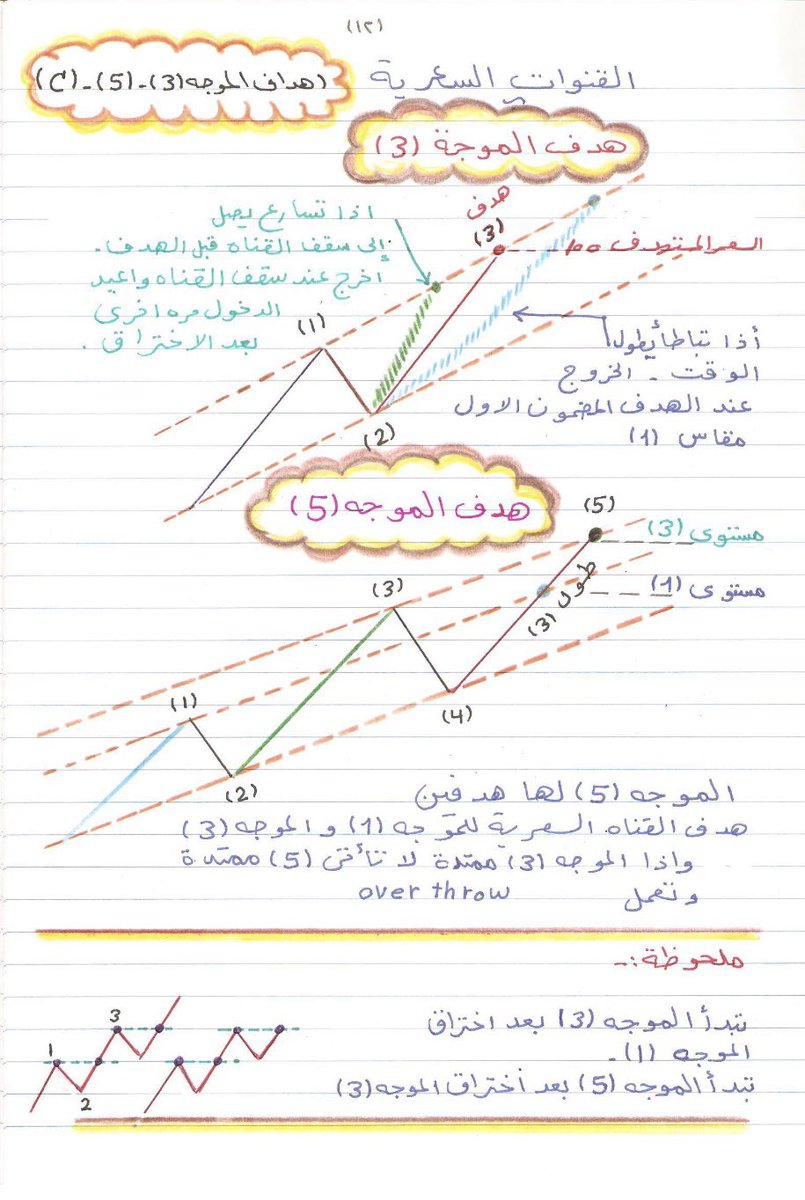 (١٢)
القنوات السعرية
(هداف الموجه (3) - (5) - (C)
هدف الموجة (3)
اذا تسارع يصل
إلى سقف القناه قبل الهدف.
أخرج عند سقف القناه واعيد
الدخول مره اخرى
بعد الاختراق.
هدف
(3)
السعر المستهدف
(1)
(2)
أذا تباطأ يطول
الوقت - الخروج
عند الهدف المضمون الاول
مقاس (1)
هدف الموجه (5)
(5)
مستوى (3)
مستوى (1)
طول (3)
(3)
(1)
(4)
(2)
الموجه (5) لها هدفين
هدف القناه السعرية للموجه (1) و الموجه (3)
واذا الموجه (3) ممتدة لا تأتى (5) ممتدة
وتعمل over throw
ملحوظة :-
تبدأ الموجه (3) بعد اختراق
الموجه (1) -
تبدأ الموجه (5) بعد أختراق الموجه (3)
3
1
2